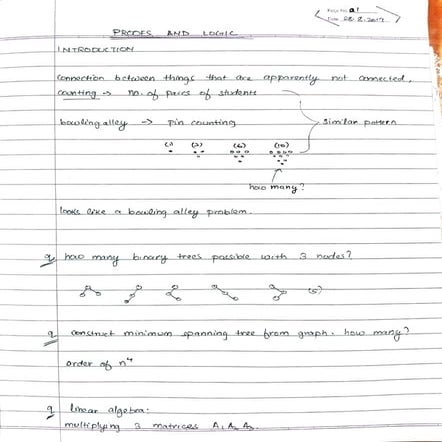 Page No. 01
Date 28.8.2017
PROOFS AND LOGIC
INTRODUCTION
connection between things that are apparently not connected.
counting → no. of pairs of students
bowling alley → pin counting
similar pattern
(1) (3) (6) (10)
how many?
looks like a bowling alley problem.
q how many binary trees possible with 3 nodes?
(5)
q construct minimum spanning tree from graph. how many?
order of n⁴
q linear algebra:
multiplying 3 matrices A₁ A₂ A₃.